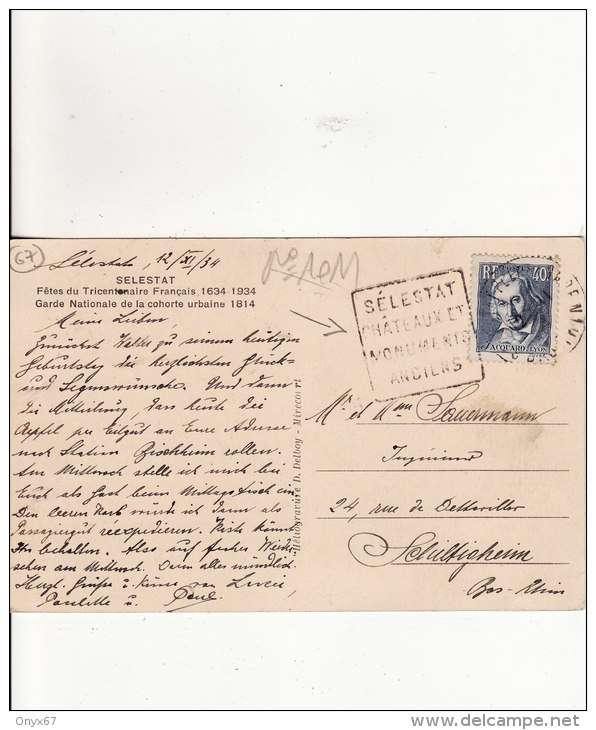 67
Sélestat, 12/XI/34
SELESTAT
Fêtes du Tricentenaire Français 1634-1934
Garde Nationale de la cohorte urbaine 1814
Meine Lieben,
Zunächst Walter zu seinem heutigen
Geburtstag die herzlichsten Glück-
und Segenswünsche. Und dann
die Mitteilung, dass heute die
Aepfel per Eilgut an Eure Adresse
nach Station Bischheim rollen.
Am Mittwoch stelle ich mich bei
Euch als Gast beim Mittagstisch ein
Den leeren Korb würde ich dann als
Passagiergut réexpedieren. Kiste könnt
Ihr behalten. Also auf frohes Wieder-
sehen am Mittwoch. Dann alles mündlich.
Herzl. Grüsse u. Küsse von Lucie,
Paulette u. Paul
Héliogravure D. Delboy - Mirecourt
SÉLESTAT
CHÂTEAUX ET
MONUMENTS
ANCIENS
RF POSTES 40c
JACQUARD LYON
Mr et Mme Sauermann
Ingénieur
24, rue de Dettwiller
Schiltigheim
Bas-Rhin
Onyx67
http://www.delcampe.net